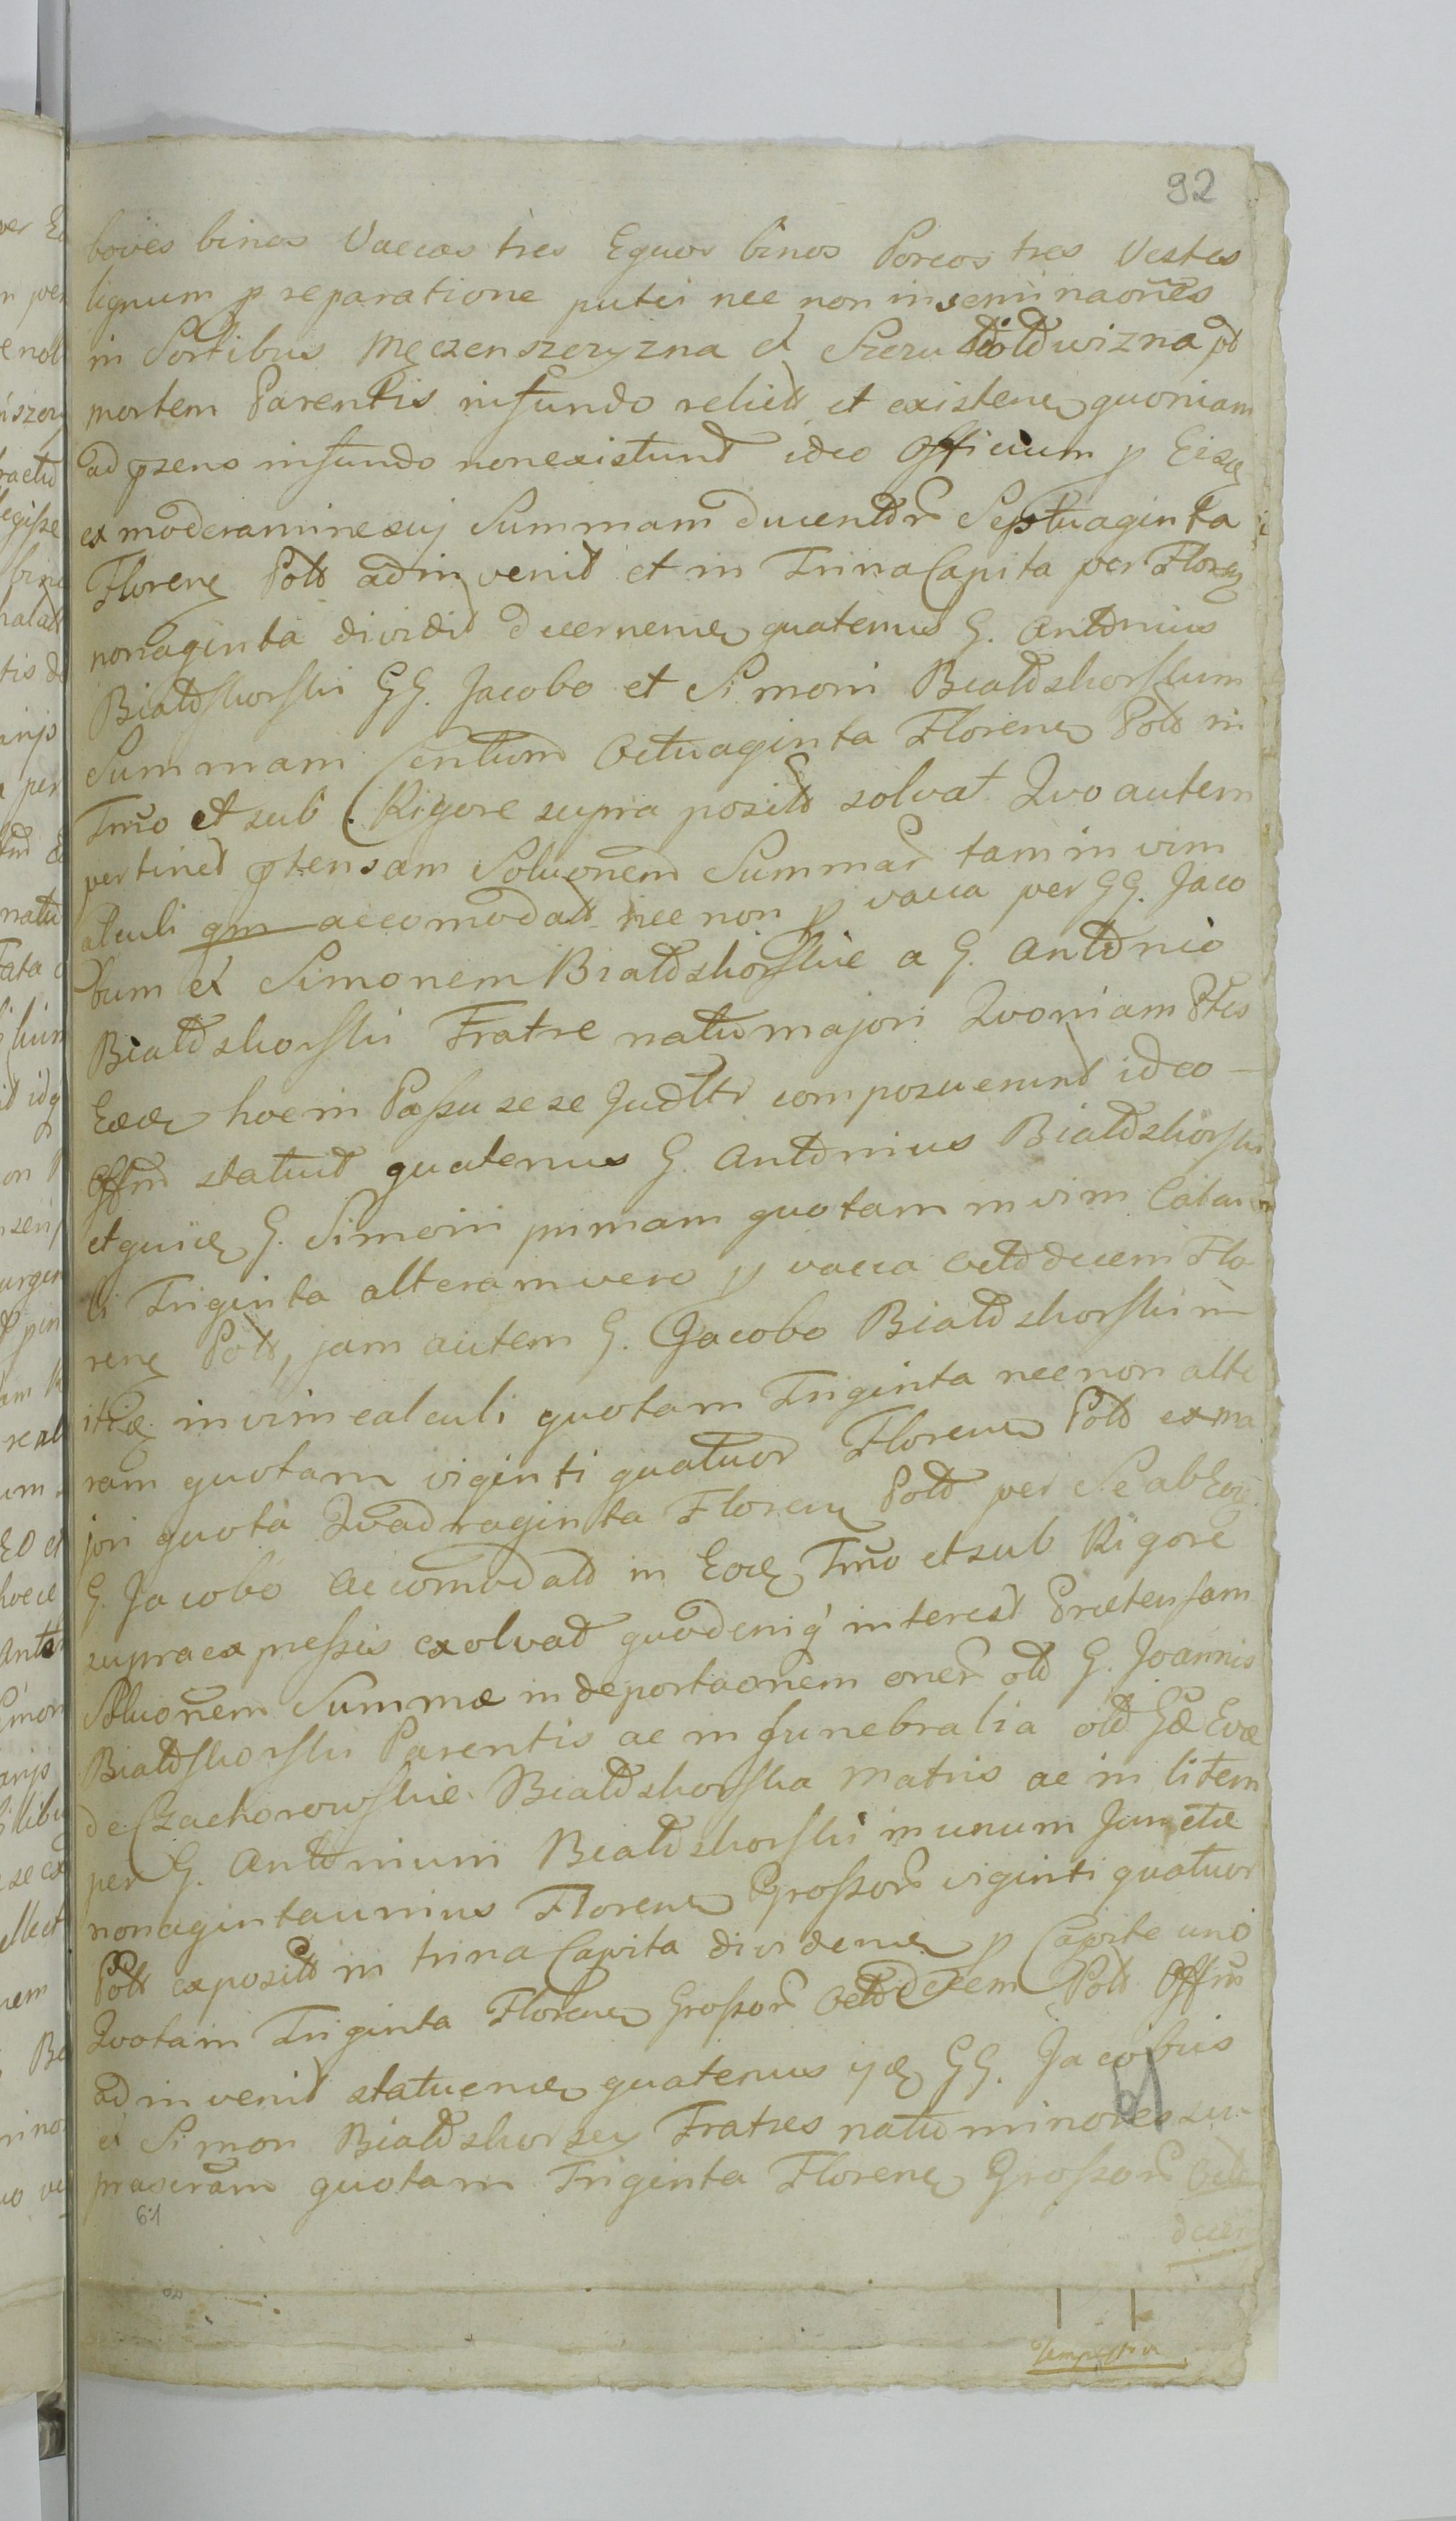 92
boves binos Vaccas tres Equos binos Porcos tres Vestes
lignum p reparatione putei nec non inseminaones
in Sortibus Męczenszczyzna et
mortem Parentis in fundo relict et existen quoniam
ad pzens in fundo non existunt ideo Officium p Eisd
ex moderamine suj Summam ducentar Septuaginta
Floren Pol adinvenit et in Trina Capita per Floren
nonaginta dividit decernen quatenus G. Antonius
Białoskorski GG. Jacobo et Simoni Białoskorskim
Summam Centum Octuaginta Floren Pol in
Tmo et sub Rigore supra posito solvat Quo autem
pertinet ptensam Soluonem Summar tam in vim
alculi qm accomodat nec non p vacca per GG. Jaco
bum et Simonem Białoskorskie a G. Antonio
Białoskorski Fratre natu majori Quoniam Ptes
Eaed hoc in Passu sese Judltr composuerunt ideo
Offm statuit quatenus G. Antonius Białoskorski
et quid G. Simoni primam quotam in vim Calcu
li Triginta alteram vero p vacca octodecem Flo
ren Pol, jam autem G. Jacobo Białoskorski
itid in vim calculi quotam Triginta nec non alte
ram quotam viginti quatuor Floren Pol ex ma
jori quota Quadraginta Floren Pol per Se ab Eod
G. Jacobo Accomodat in Eod Tmo et sub Rigore
supra expressis exolvat quod eniq interest Prætensam
Soluonem Summæ in deportaonem oner ol G. Joannis
Białoskorski Parentis ac in funebralia ol Gæ Evæ
de Czachorowskie Białoskorska Matris ac in litem
per G. Antonium Białoskorski in unum Junctæ
nonaginta unius Floren Grossor viginti quatuor
Pol exposit in trina Capita dividen p Capite uno
Quotam Triginta Floren Grossor Octodecem Pol Offm
adinvenit statuen quatenus ijd GG. Jacobus
et Simon Białoskorscy Fratres natu minores su-
prascram quotam Triginta Floren Grossor Octo
decem
61